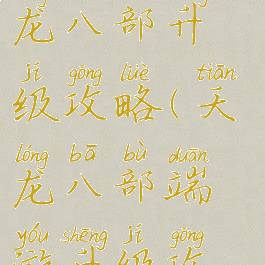 龙八部升
jí gōng lüè tiān
级攻略(天
lóng bā bù duān
龙八部端
yóu shēng jí gōng
游升级攻